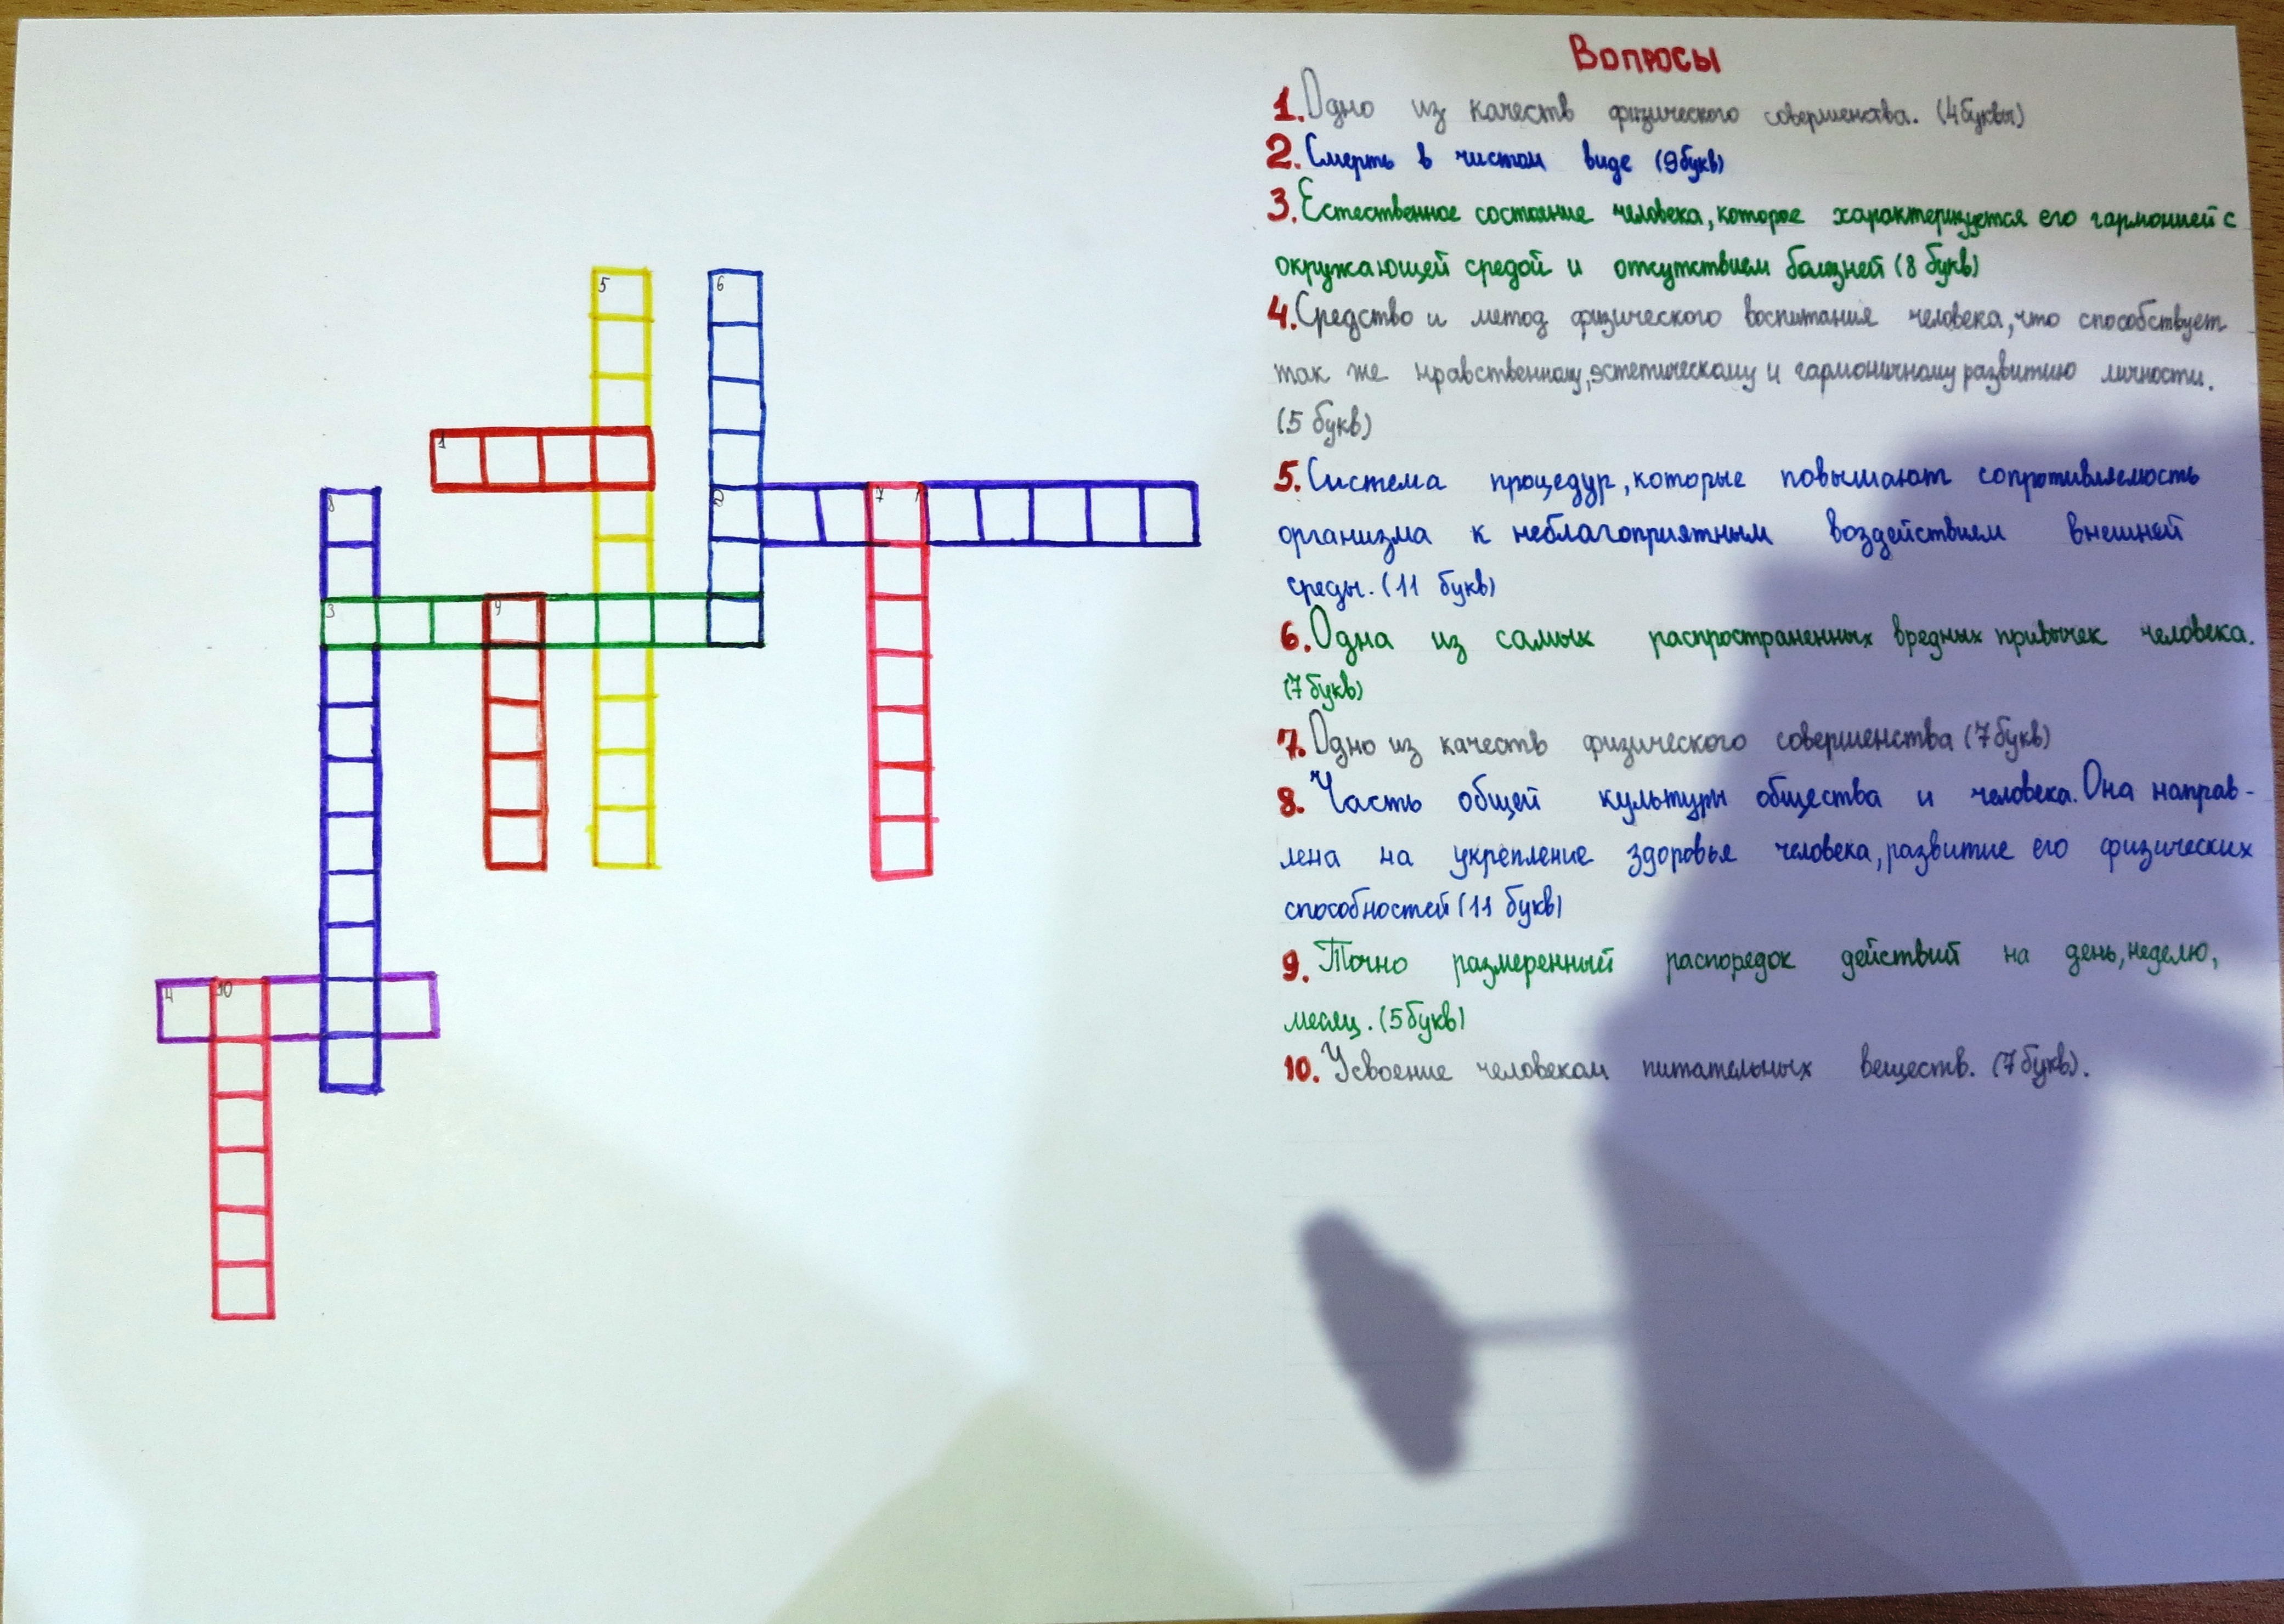 Вопросы
1. Одно из качеств физического совершенства. (4 буквы)
2. Смерть в чистом виде (9 букв)
3. Естественное состояние человека, которое характеризуется его гармонией с
окружающей средой и отсутствием болезней (8 букв)
4. Средство и метод физического воспитания человека, что способствует
так же нравственному, эстетическому и гармоничному развитию личности.
(5 букв)
5. Система процедур, которые повышают сопротивляемость
организма к неблагоприятным воздействиям внешней
среды. (11 букв)
6. Одна из самых распространенных вредных привычек человека.
(7 букв)
7. Одно из качеств физического совершенства (7 букв)
8. Часть общей культуры общества и человека. Она направ-
лена на укрепление здоровья человека, развитие его физических
способностей (11 букв)
9. Точно размеренный распорядок действий на день, неделю,
месяц. (5 букв)
10. Усвоение человеком питательных веществ. (7 букв).
5
6
1
8
2
7
3
9
4
10